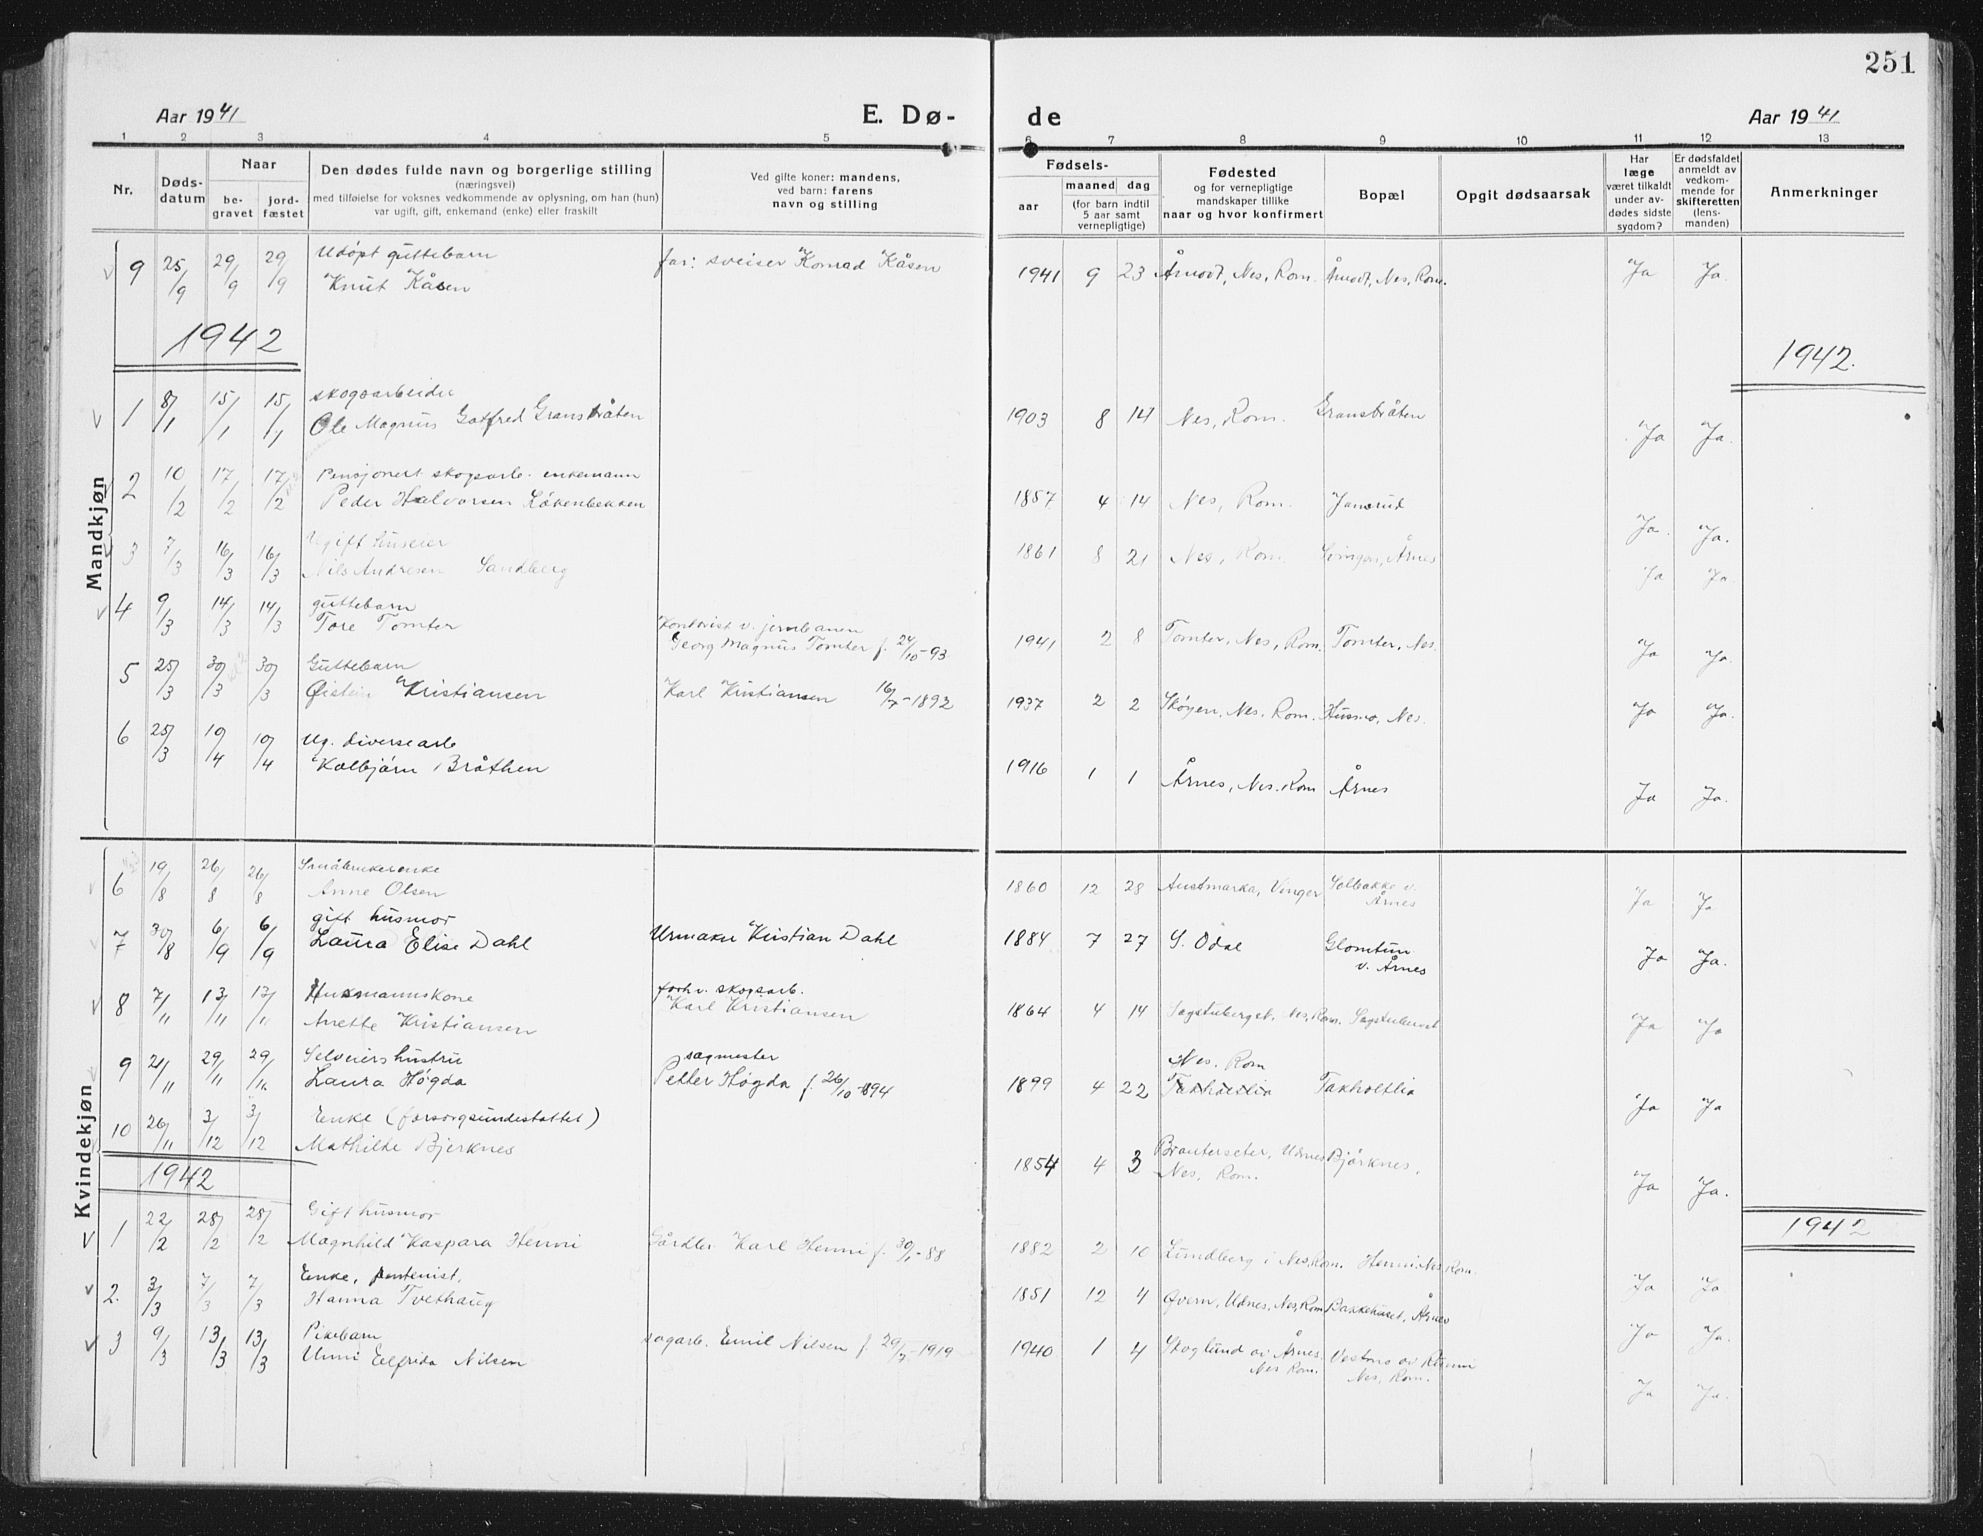 251
Aar 1941
E. Dø-
de
Aar 1941
1 2 3 4 5 6 7 8 9 10 11 12 13
Nr.
Døds-
datum
Naar
be-
gravet
jord-
fæstet
Den dødes fulde navn og borgerlige stilling
(næringsvei)
med tilføielse for voksnes vedkommende av oplysning, om han (hun)
var ugift, gift, enkemand (enke) eller fraskilt
Ved gifte koner: mandens,
ved barn: farens
navn og stilling
Fødsels-
aar
maaned dag
(for barn indtil
5 aar samt
vernepligtige)
Fødested
og for vernepligtige
mandskaper tillike
naar og hvor konfirmert
Bopæl
Opgit dødsaarsak
Har
læge
været tilkaldt
under av-
dødes sidste
sygdom?
Er dødsfaldet
anmeldt av
vedkom-
mende for
skifteretten
(lens-
manden)
Anmerkninger
Mandkjøn
9 25/9 29/9 29/9 Udøpt guttebarn far: sveiser Konrad Kåsen 1941 9 23 Årnodt, Nes, Rom. Årnodt, Nes, Rom. Ja Ja.
Knut Kåsen
1942
1942.
1 8/1 15/1 15/1 skogsarbeider 1903 8 14 Nes, Rom. Gransbråten Ja Ja.
Ole Magnus Gotfred Gransbråten
2 10/2 17/2 17/2 Pensjonert skogsarb. enkemann 1857 4 14 Nes, Rom. Ja. Ja.
Peder Halvorsen Løkenbekken
3 7/3 16/3 16/3 Ugift huseier 1861 8 21 Nes, Rom. Årnes Ja Ja.
Nils Andresen Sandberg
4 9/3 14/3 14/3 guttebarn
Tore Tomter Kontorist v. jernbanen
Georg Magnus Tomter f. 24/10-93 1941 2 8 Tomter, Nes, Rom. Tomter, Nes. Ja Ja.
5 25/3 30/3 30/3 Guttebarn
Øistein Kristiansen Karl Kristiansen 16/7-1892 1937 2 2 Skøyen, Nes, Rom. Husmo, Nes. Ja Ja.
6 25/3 10/4 10/4 Ug. diversearb
Kolbjørn Bråthen 1916 1 1 Årnes, Nes. Rom Årnes Ja Ja.
Kvindekjøn
6 19/8 26/8 26/8 Småbrukerenke
Anne Olsen 1860 12 28 Austmarka, Vinger Solbakke v. Årnes Ja Ja
7 30/8 6/9 6/9 gift husmor
Laura Elise Dahl Urmaker Kristian Dahl 1884 7 27 S. Odal Glomtun v. Årnes Ja Ja.
8 7/11 13/11 13/11 Husmannskone forh.v. skogsarb.
Anette Kristiansen Karl Kristiansen 1864 4 14 Sagstuberget, Nes, Rom. Sagstuberget Ja Ja
9 21/11 29/11 29/11 Selveiers hustru sagmester Nes, Rom
Laura Høgda Petter Høgda f. 26/10-1894 1899 4 22 Takholtlia Takholtlia Ja Ja
10 26/11 3/12 3/12 Enke (forsorgsunderstøttet)
Mathilde Bjerknes 1854 4 3 Branterseter, Udnes Bjørknes,
Nes, Rom. Ja Ja.
1942
1942
1 22/2 28/2 28/2 Gift husmor
Magnhild Kaspara Henni Gårdbr. Karl Henni f. 30/1-88 1882 2 10 Lundberg i Nes, Rom. Henni, Nes, Rom. Ja Ja
2. 3/3 7/3 7/3 Enke, rentenist,
Hanna Tvethaug 1851 12 4 Øvern, Udnes, Nes, Rom Bakkehuset, Årnes Ja Ja.
3 9/3 13/3 13/3 Pikebarn
Unni Elfrida Nilsen sagarb. Emil Nilsen f. 29/7-1919 1940 1 4 Skoglund av Årnes,
Nes Rom. Nes, Rom. Ja Ja.